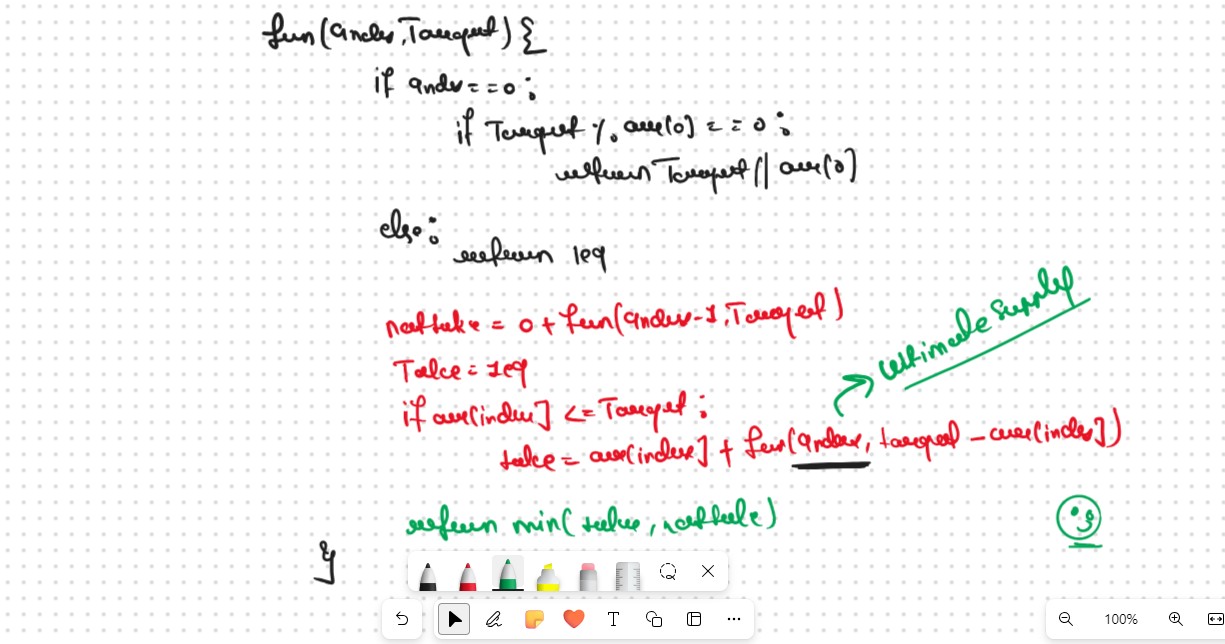 fun(index,Target) {
if index==0:
if Target % arr[0] == 0:
return Target // arr[0]
else:
return 1e9
nottake = 0 + fun(index-1,Target)
Take = 1e9
if arr[index] <= Target:
take = arr[index] + fun(index, target - arr[index])
ultimate supply
return min(take, nottake)
}
T
100%